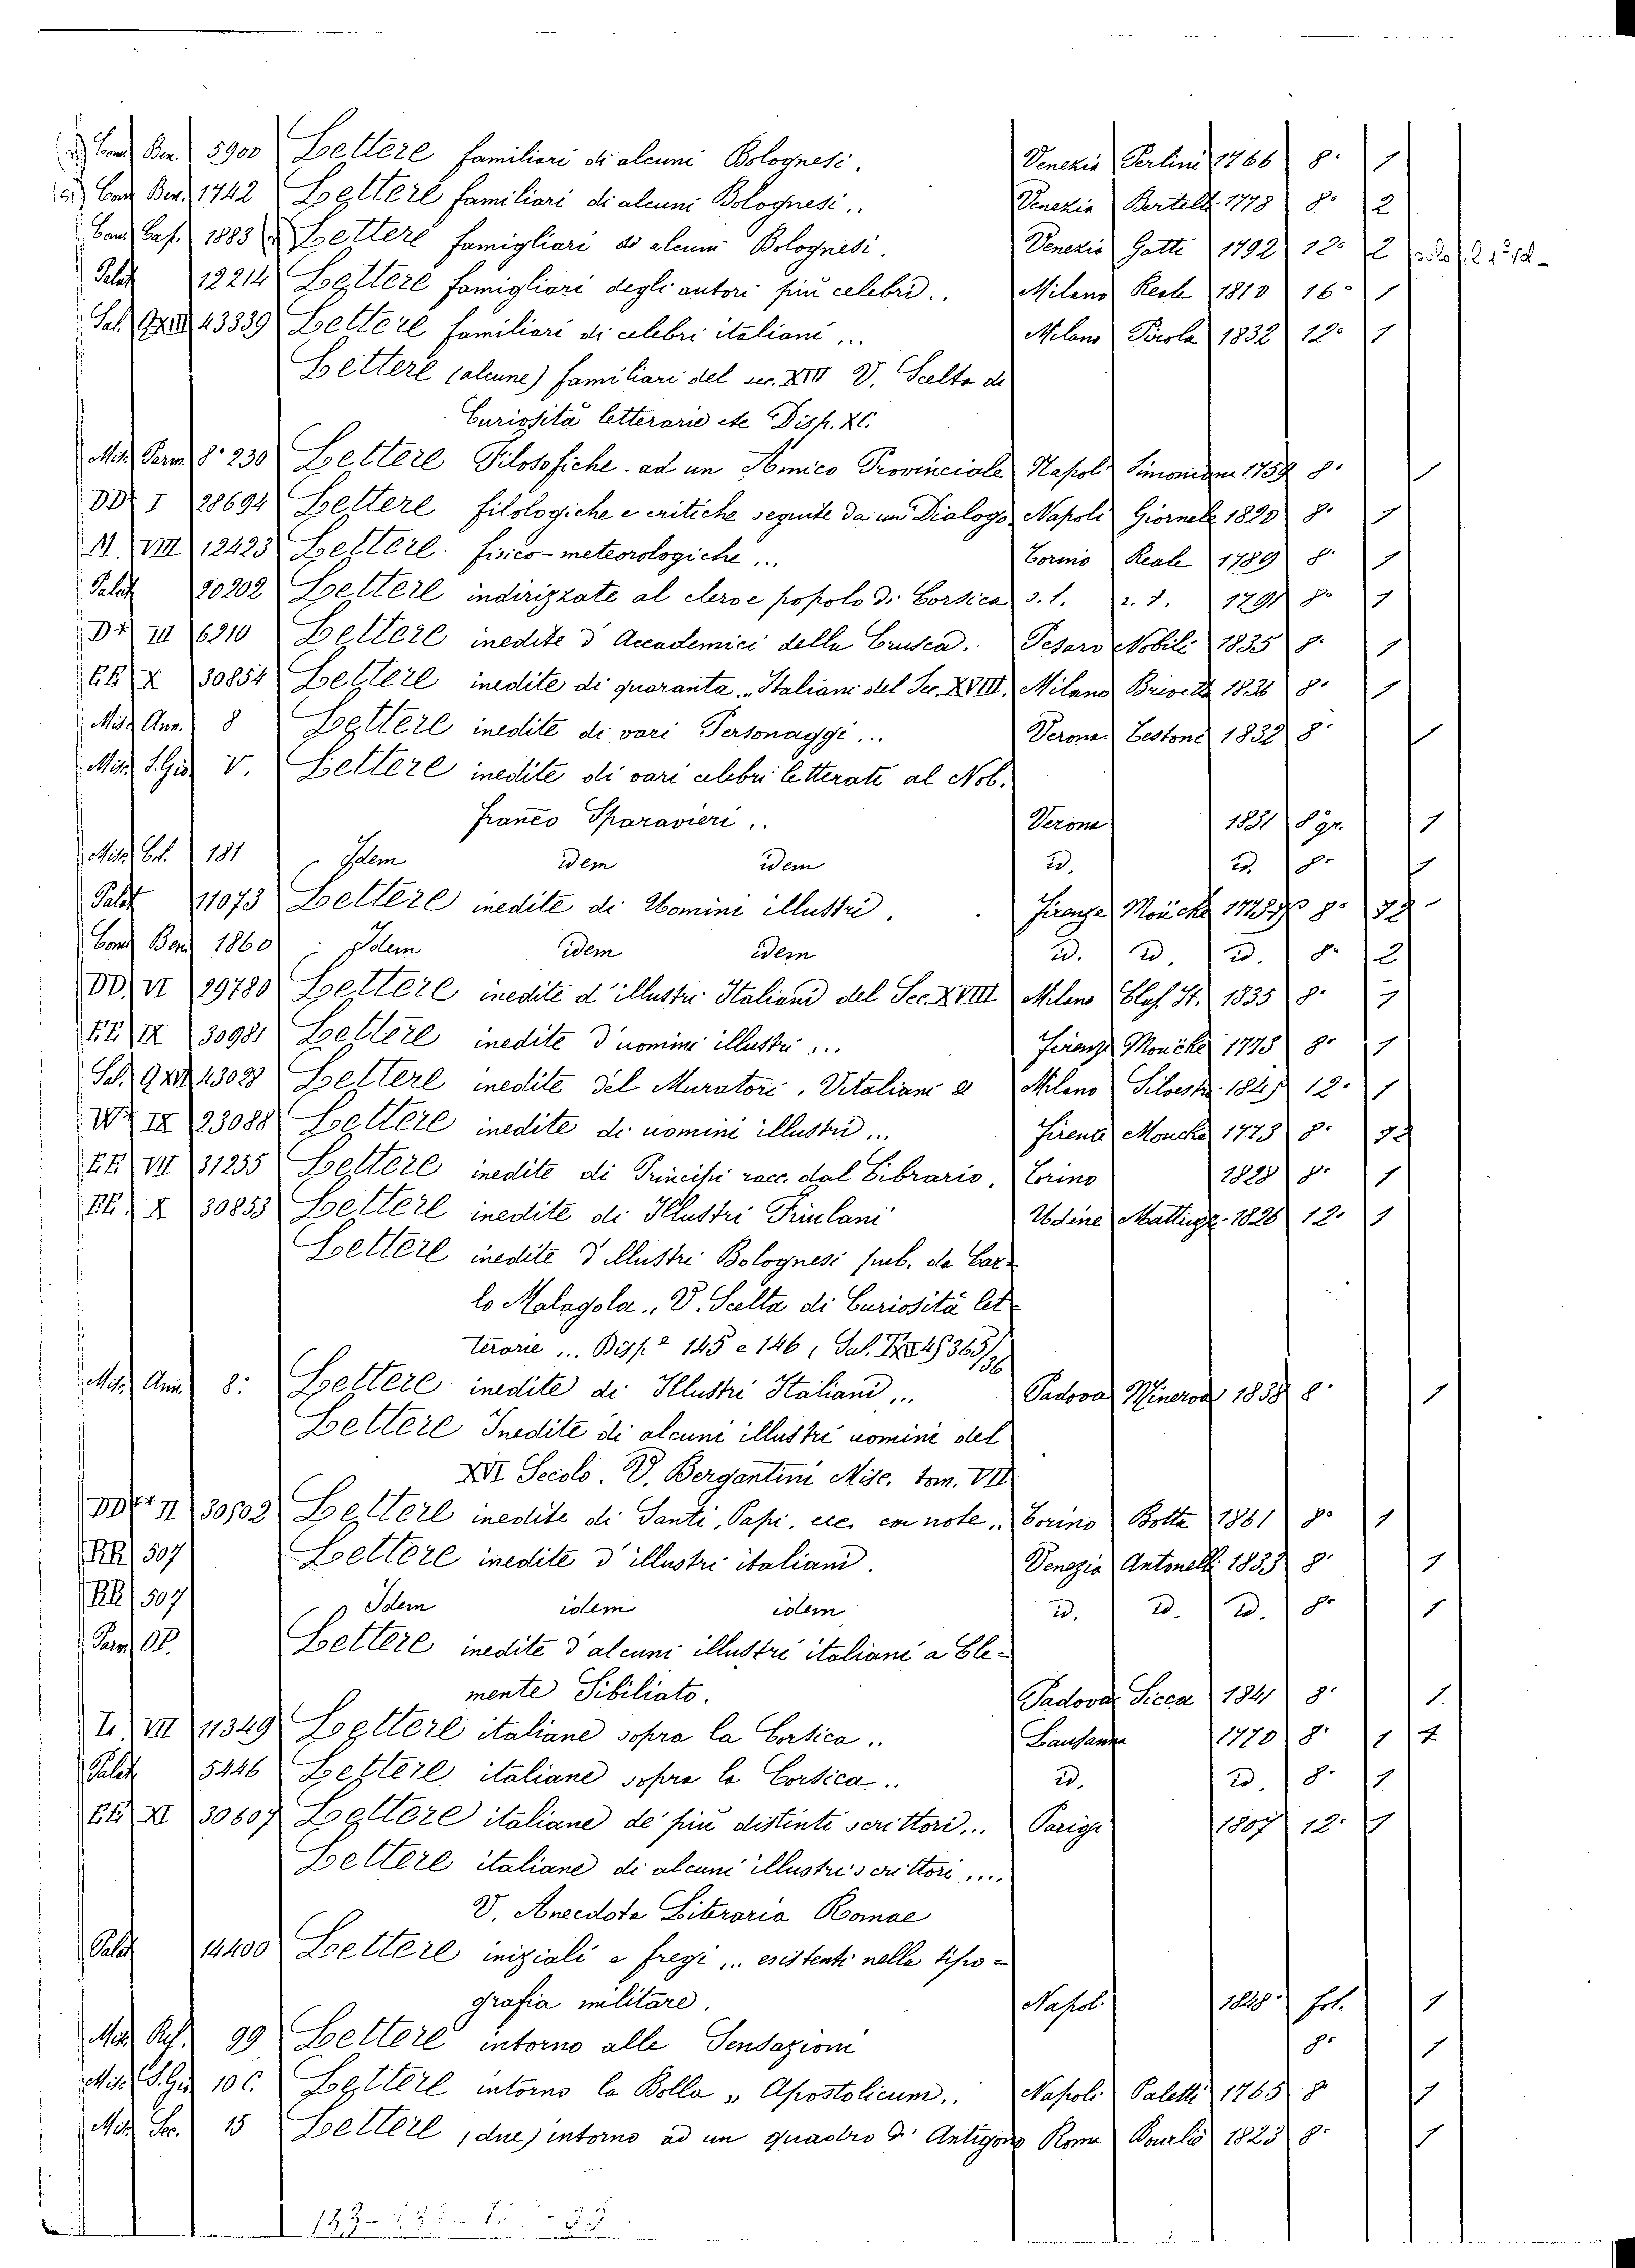 Ben. 5900 Lettere familiari di alcuni Bolognesi. Venezia Perlini 1766 8° 1
Ben. 1742 Lettere familiari di alcuni Bolognesi.. Venezia Bertell. 1778 8° 2
1883 Lettere famigliari di alcuni Bolognesi. Venezia Gatti 1792 12° 2
Palat 12214 Lettere famigliari degli autori più celebri.. Milano Reale 1810 16° 1
Sal. 43339 Lettere familiari di celebri italiani ... Milano Pirola 1832 12° 1
Lettere (alcune) familiari del sec. XIV V. Scelta di
Curiosità letterarie etc Disp. XC.
Misc. Parm. 8° 230 Lettere Filosofiche ad un Amico Provinciale Napoli 8° 1
DD I 28694 Lettere filologiche e critiche seguite da un Dialogo Napoli Giornale 1820 8° 1
VIII 12423 Lettere fisico-meteorologiche ... Torino Reale 1789 8° 1
Palat 20202 Lettere indirizzate al clero e popolo di Corsica s. l. 8° 1
III 6210 Lettere inedite d'Accademici della Crusca.. Pesaro Nobili 1835 8° 1
X 30854 Lettere inedite di quaranta.. Italiani del Sec. XVIII. Milano 1836 8° 1
Misc. Ann. 8 Lettere inedite di vari Personaggi ... Verona 1832 8° 1
Misc. S. Gio V. Lettere inedite di vari celebri letterati al Nob.
Franco Sparavieri .. Verona 1831 8 gr. 1
Misc. 181 Idem idem idem id. id. 8° 1
Palat 11073 Lettere inedite di Uomini illustri. Firenze Moücke 8°
Ben. 1860 Idem idem idem id. id. id. 8° 2
DD. VI 29780 Lettere inedite d'illustri Italiani del Sec. XVIII Milano Clas. It. 1835 8° 1
IX 30981 Lettere inedite d'uomini illustri ... Firenze Moucke 8° 1
Sal. Lettere inedite del Muratori, Vitaliani & Milano Silvestri 12° 1
IX 23088 Lettere inedite di uomini illustri ... Firenze Moucke 8°
VII 31235 Lettere inedite di Principi racc. dal Cibrario. Torino 1828 8° 1
X 30853 Lettere inedite di Illustri Friulani Udine Mattiuzz. 1826 12° 1
Lettere inedite d'illustri Bolognesi pub. da Car-
lo Malagola.. V. Scelta di Curiosità let-
terarie ... Disp.e 145 e 146
Misc. Ann. 8° Lettere inedite di Illustri Italiani ... Padova Minerva 1838 8° 1
Lettere Inedite di alcuni illustri uomini del
XVI Secolo. V. Bergantini Misc. tom. VII
II 30502 Lettere inedite di Santi, Papi, ecc, con note.. Torino Botta 1861 8° 1
RR 507 Lettere inedite d'illustri italiani. Venezia Antonelli 1835 8° 1
RR 507 Idem idem idem id. id. id. 8° 1
Lettere inedite d'alcuni illustri italiani a Cle-
mente Sibiliato. Padova Sicca 1841 8° 1
VII 11349 Lettere italiane sopra la Corsica .. Lausanna 1770 8° 1
Palat 5446 Lettere italiane sopra la Corsica .. id. id. 8° 1
XI 30607 Lettere italiane de' più distinti scrittori... Parigi 1807 12° 1
Lettere italiane di alcuni illustri scrittori ....
V. Anecdota Litteraria Romae
Palat 14400 Lettere iniziali e fregi ... esistenti nella tipo-
grafia militare. Napoli fol. 1
Misc. 99 Lettere intorno alle Sensazioni 8° 1
Misc. S. Gio 10 C. Lettere intorno la Bolla „ Apostolicum .. Napoli Paletti 1765 8° 1
Misc. 15 Lettere (due) intorno ad un quadro di Antigono Roma Bourliè 1825 8° 1